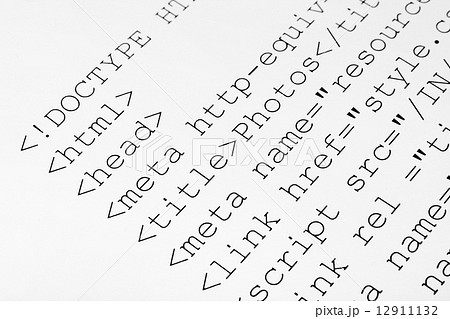 <!DOCTYPE HT
<html>
<head>
<meta http-equiv-
<title>Photos</tit
<meta name="resource
<link href="style.cs
script src="/IN/
ink rel ="ti
a name=
na
pixta
pixta.jp - 12911132